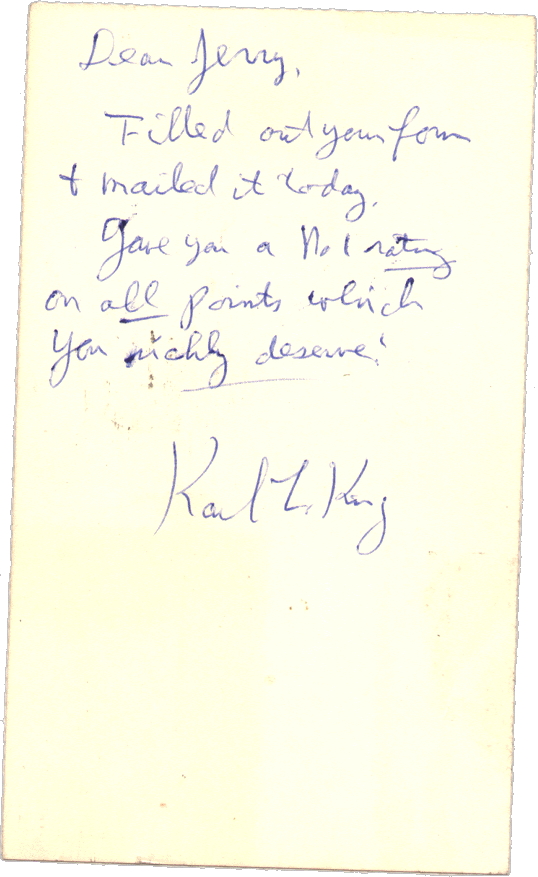 Dear Jerry,
Filled out your form
+ mailed it today.
Gave you a No 1 rating
on all points which
you richly deserve!
Karl L. King